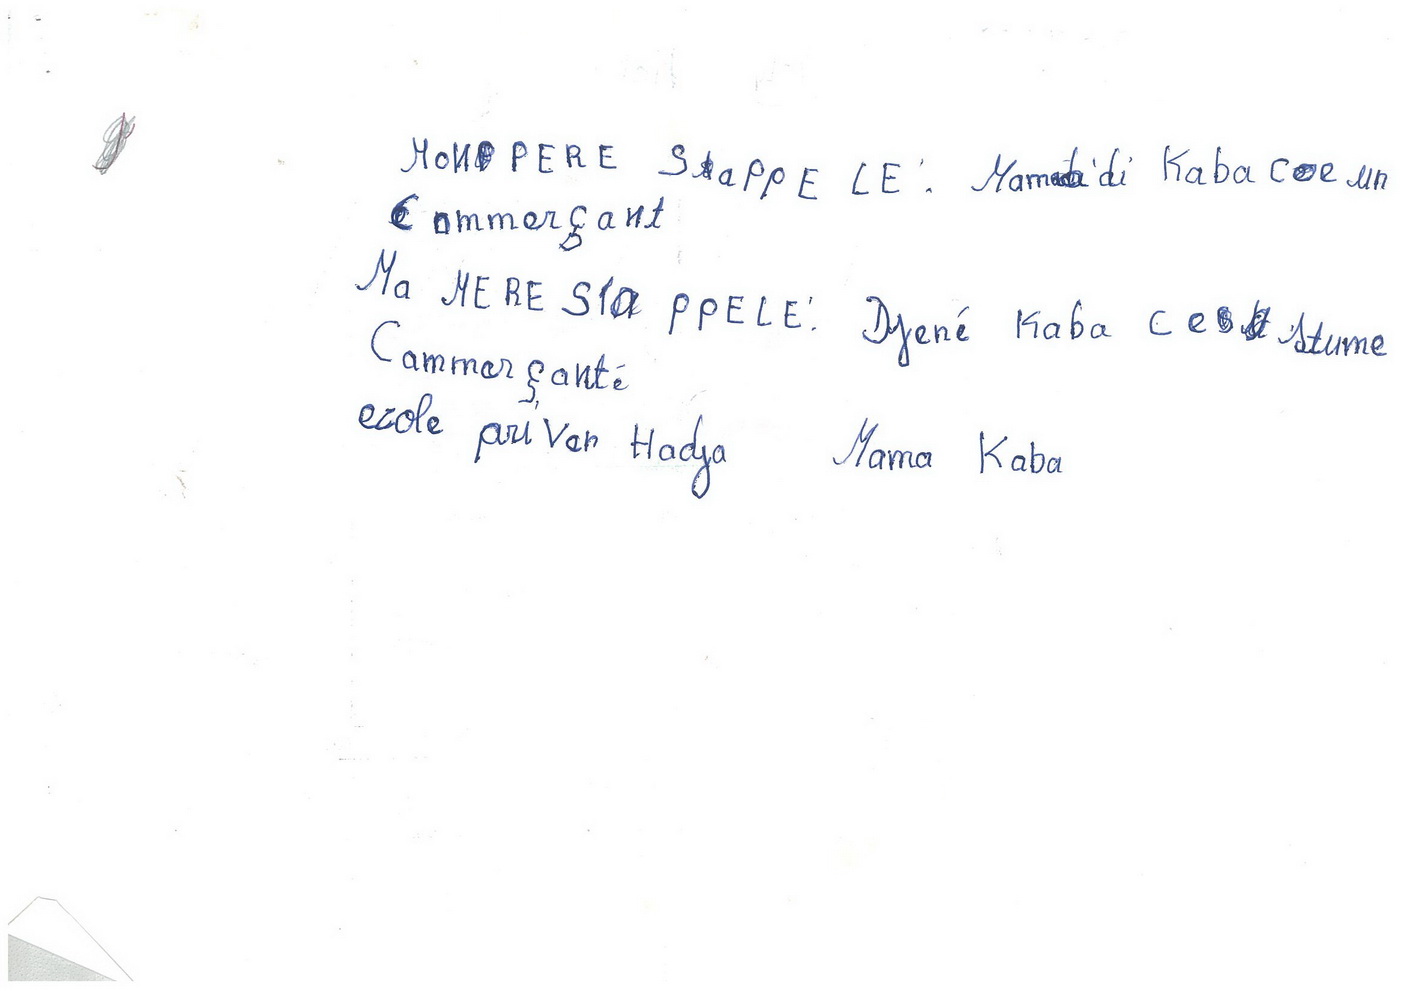 MON PERE S'aPPELE'. Mamadi Kaba coe un
Commerçant
Ma MERE S'a PPELE'. Djené Kaba ces stume
Cammerçanté
ecole priver Hadja Mama Kaba